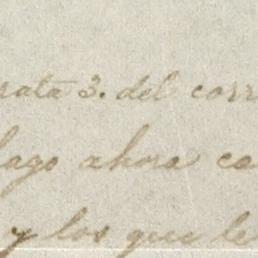 rata 3. del corr
lago ahora co
y los que le